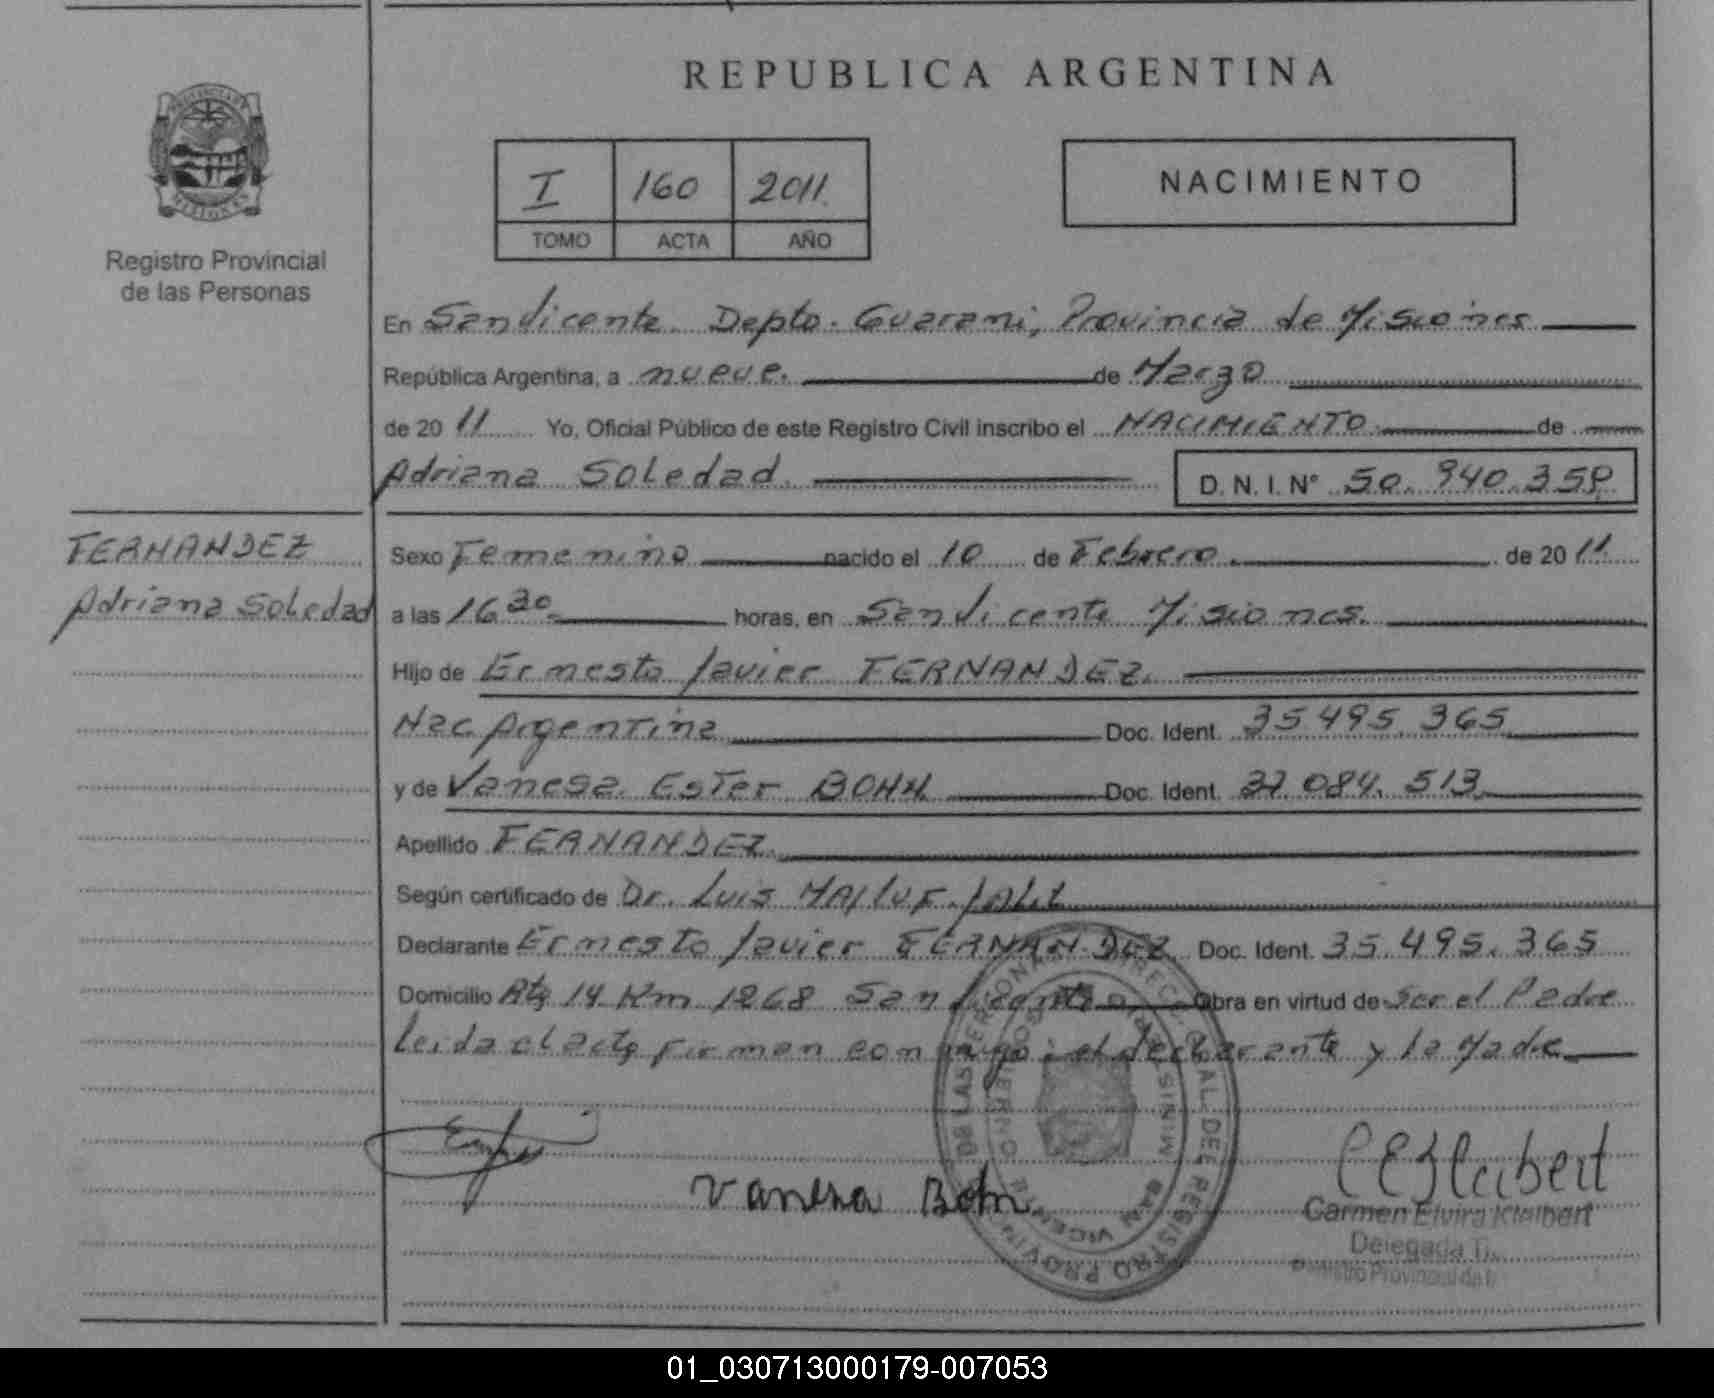 REPUBLICA ARGENTINA
PROVINCIA DE
MISIONES
Registro Provincial
de las Personas
I 160 2011.
TOMO ACTA AÑO
NACIMIENTO
En San Vicente. Depto. Guarani, Provincia de Misiones
República Argentina, a nueve. de Marzo
de 20 11 Yo, Oficial Público de este Registro Civil inscribo el NACIMIENTO de
Adriana Soledad. D. N. I. N° 50. 940.35
FERNANDEZ
Adriana Soledad
Sexo Femenino nacido el 10 de Febrero. de 20 11
a las 16 30 horas, en San Vicente Misiones.
Hijo de Ernesto Javier FERNANDEZ.
Nac Argentina Doc. Ident. 35 495. 365
y de Vanesa Ester BOHN Doc. Ident. 084. 513
Apellido FERNANDEZ
Según certificado de Dr. Luis
Declarante Ernesto Javier FERNANDEZ Doc. Ident. 35.495.365
Domicilio Rta 14 Km 1268 San Vicente Obra en virtud de Ser el Padre
leida el acta firman conmigo: el declarante y la Madre
Vanesa Bohn
Carmen Elvira Kleibert
Delegada
Registro Provincial de
SAN VICENTE
01_030713000179-007053